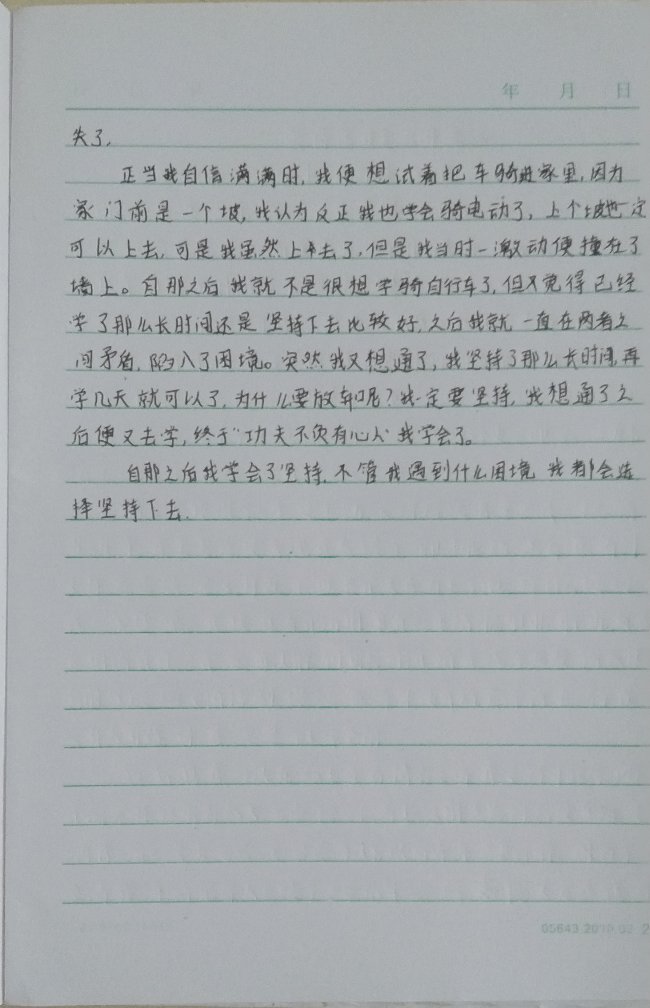 年 月 日
失了,
正当我自信满满时,我便想试着把车骑进家里,因为
家门前是一个坡,我认为反正我也学会骑电动了,上个坡也一定
可以上去,可是我虽然上去了,但是我当时一激动便撞在了
墙上。自那之后我就不是很想学骑自行车了,但又觉得已经
学了那么长时间还是坚持下去比较好,之后我就一直在两者之
间矛盾,陷入了困境。突然我又想通了,我坚持了那么长时间,再
学几天就可以了,为什么要放弃呢?我一定要坚持,我想通了之
后便又去学,终于“功夫不负有心人”我学会了。
自那之后我学会了坚持,不管我遇到什么困境 我都会选
择坚持下去.